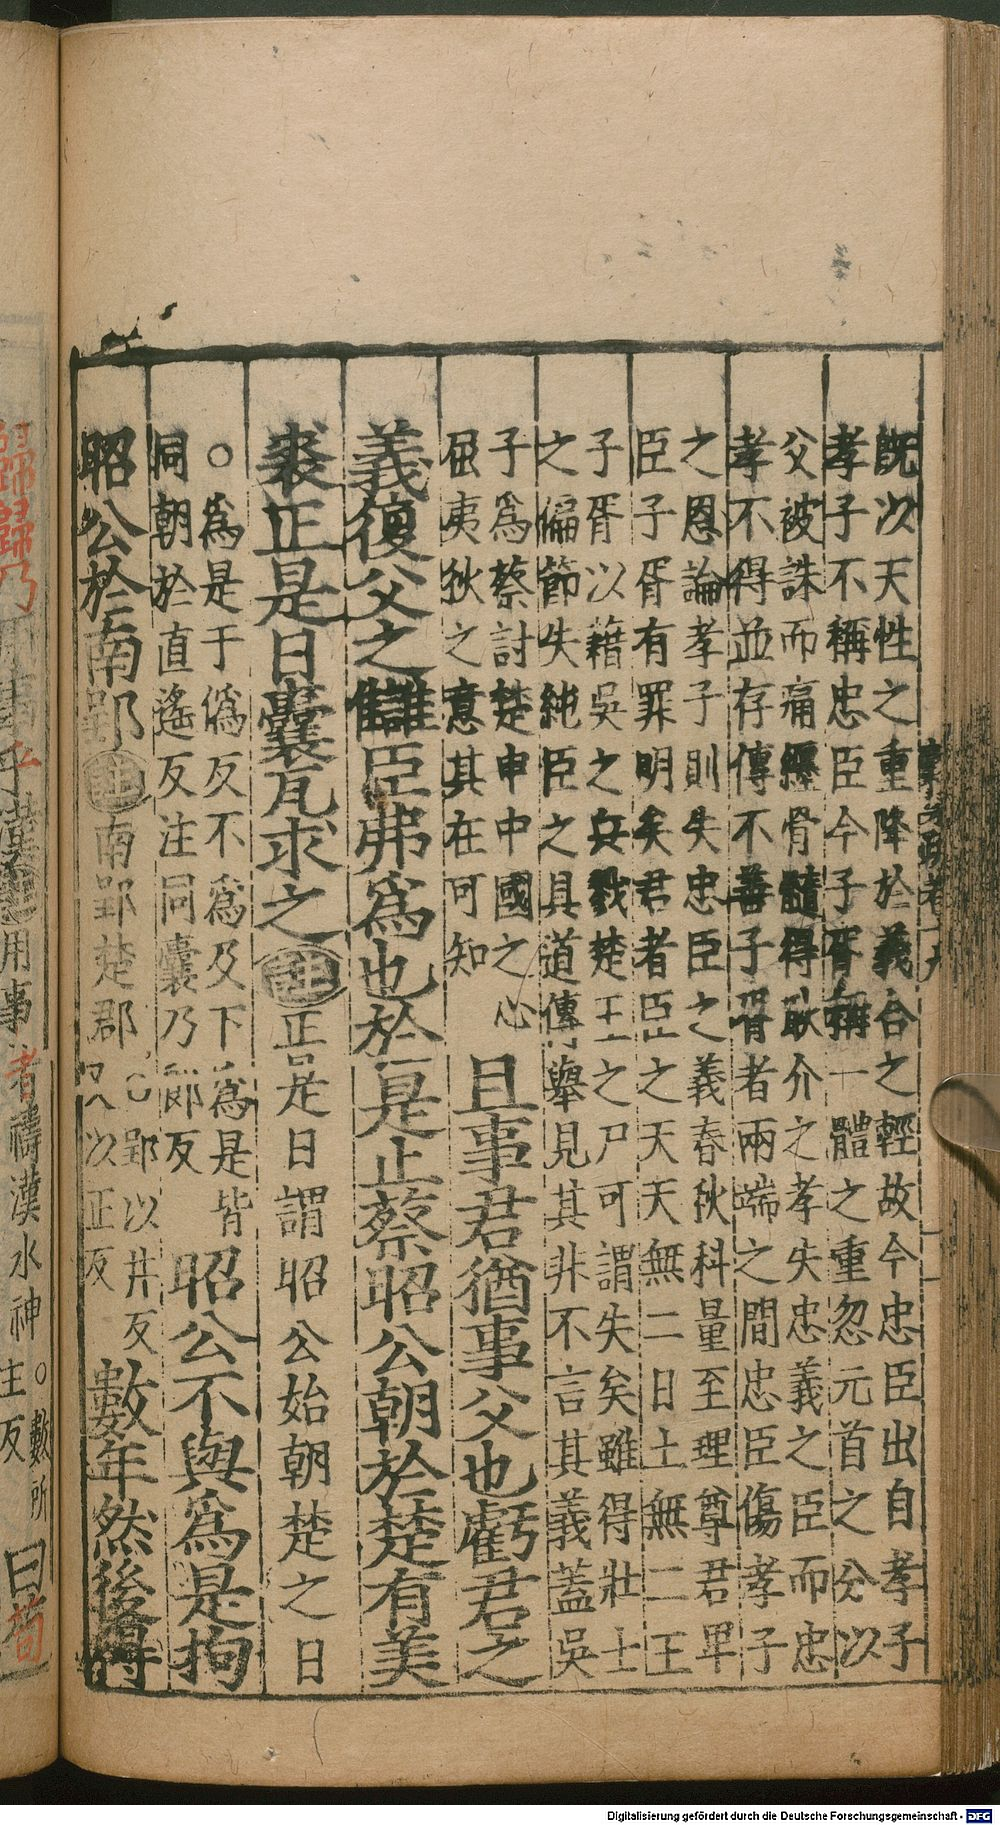 既以天性之重降於義合之輕故今忠臣出自孝子
孝子不稱忠臣今子胥稱一體之重忽元首之分以
父被誅而痛纏骨髓得耿介之孝失忠義之臣而忠
孝不得並存傳不善子胥者兩端之間忠臣傷孝子
之恩論孝子則失忠臣之義春秋科量至理尊君卑
臣子胥有罪明矣君者臣之天天無二日土無二王
子胥以藉吳之兵戮楚王之尸可謂失矣雖得壯士
之偏節失純臣之具道傳舉見其非不言其義蓋吳
子爲蔡討楚申中國之心
屈夷狄之意其在可知
且事君猶事父也虧君之
義復父之讎臣弗爲也於是止蔡昭公朝於楚有美
裘正是日囊瓦求之
註
正是日謂昭公始朝楚之日
○爲是于僞反不爲及下爲是皆
同朝於直遙反注同囊乃郎反
昭公不與爲是拘
昭公於南郢
註
南郢楚郡
郢以井反
又以正反
數年然後得
用事者禱漢水神
○數所
主反
曰苟
Digitalisierung gefördert durch die Deutsche Forschungsgemeinschaft - DFG